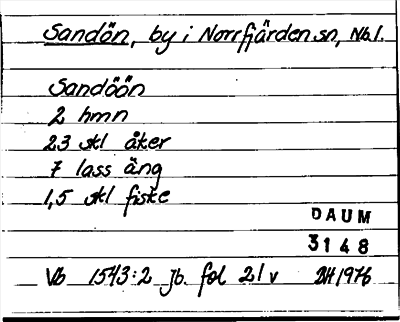 Sandön, by i Norrfjärden sn, Nb.l.
Sandöön
2 hmn
23 skl åker
7 lass äng
1,5 skl fiske
DAUM
3148
Vb 1543:2 jb. fol 21 v BH 1976